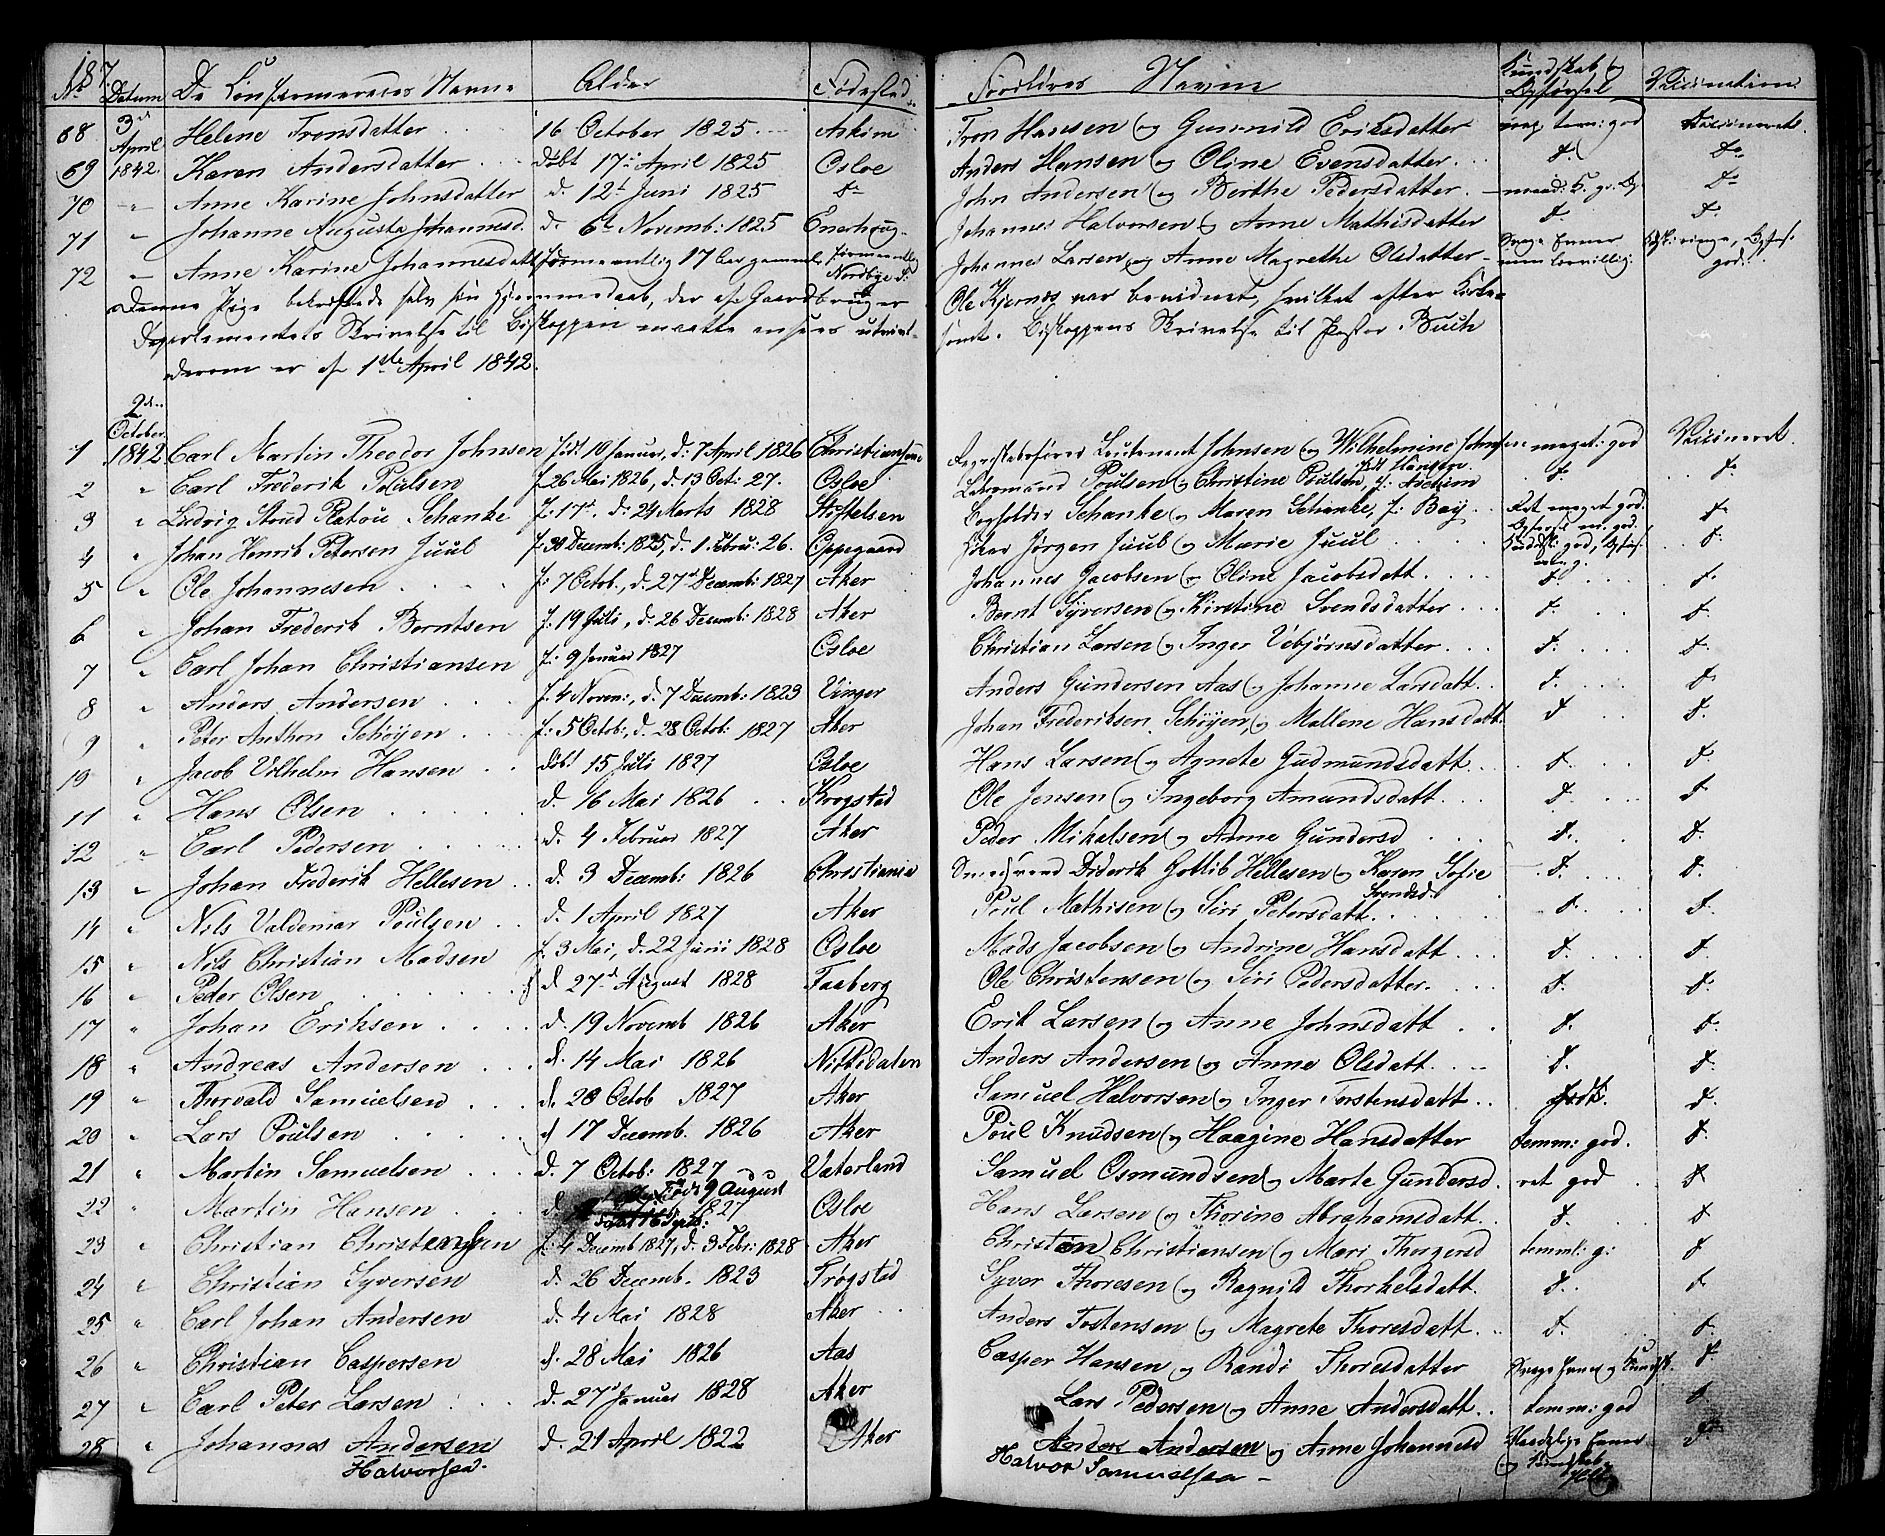 187.
No Datum De Confirmeredes Navne Alder Fødested Forældres Navne Kundskab og Opførsel Vaccination
68 3die April 1842. Helene Fronsdatter 16 October 1825. Askim Fron Hansen og Gunnild Eriksdatter meg. tem: god Vaccineret.
69 Karen Andersdatter Døbt 17de April 1825 Osloe Anders Hansen og Oline Evensdatter d. do
70 " Anne Karine Johnsdatter d. 12te Juni 1825 do John Andersen og Berthe Pedersdatter. do
71 " Johanne Augusta Johannesd. d. 6te Novemb: 1825 Enerhoug. Johannes Halvorsen og Anne Mathisdatter d. d.
72 " Anne Karine Johannesdatt. formeentlig 17 Aar gammel formeentlig Nordbye Johannes Larsen og Anne Magrethe Olsdatter Svage Evner god.
Denne Pige bekræftede selv sin Hjemmedaab, der af Gaardbruger Ole Kjernæs var bevidnet, hvilket efter Kirke-
Departementets Skrivelse til Biskoppen maatte ansees utvivl-somt. Biskoppens Skrivelse til Pastor Buch
derom er af 1ste April 1842.
1 2den October 1842. Carl Martin Theodor Johnsen fød: 10 Januar, d: 7 April 1826 Christiansund Regnskabsfører Lieutenant Johnsen og Wilhelmine Johnsen født Hansen. meget: god Vaccineret.
2 " Carl Frederik Poulsen f. 26 Mai 1826, d. 13 Oct: 27. Osloe Poulsen og Christine Poulsen, f: d. do
3 " Ludvig Stoud Platou Schanke f: 17de d. 24 Marts 1828 Stiftelsen Bogholder Schanke og Maren Schanke, f: Bay Ret meget god. d.
4 " Johan Henrik Petersen Juul f. 30 Decemb: 1825, d. 1 Febru: 26. Oppegaard Jørgen Juul og Marie Juul Kundsk: god, d.
5 " Ole Johannesen f: 7 Octob., d. 27de Decemb: 1827 Aker Johannes Jacobsen og Oline Jacobsdatt. d. d.
6 " Johan Frederik Berntsen f: 19 Juli, d. 26 Decemb: 1828 Aker Bernt Syversen og Kirstine Svendsdatter d. d.
7 " Carl Johan Christiansen f: 9 Januar 1827 Osloe Christian Larsen og Inger Vebjørnsdatter d. d.
8 " Anders Andersen f. 4 Novem:, d. 7 Decemb: 1823 Vinger Anders Gundersen Aas og Johanne Larsdatt. d. d.
9 " Peter Anthon Schøyen f: 5 Octob:, d. 28 Octob: 1827 Aker Johan Frederiksen Schøyen, og Mallene Hansdatt. d d.
10 " Jacob Vilhelm Hansen døbt 15 Juli 1827 Osloe Hans Larsen og Agnete Gudmundsdatt. d. d.
11 " Hans Olsen d. 16 Mai 1826 Krogstad Ole Jensen og Ingeborg Amundsdatt. d. d
12 " Carl Pedersen d. 4 Februar 1827 Aker Peder Mikelsen og Anne Gundersd d. d.
13 " Johan Frederik Hellesen d. 3 Decemb: 1826 Christiania Smedsvend Diderik Gotlib Hellesen og Karen Sofie Svendsd. d. d.
14 " Nils Valdemar Poulsen d. 1 April 1827 Aker Poul Mathisen og Siri Petersdatt. d. d.
15 " Nils Christian Madsen f. 3 Mai, d. 22 Junii 1828 Osloe Mads Jacobsen og Andrine Hansdatt. d. d.
16 " Peder Olsen d 27de August 1828 Faaberg Ole Christensen og Siri Pedersdatter. d. d.
17 " Johan Eriksen d. 19 Novemb 1826 Aker Erik Larsen og Anne Johnsdatt d. d.
18 " Andreas Andersen d. 14 Mai 1826 Nittedalen Anders Andersen og Anne Olsdatt. d. d.
19 " Thorvald Samuelsen d. 28 Octob 1827 Aker Samuel Halvorsen og Inger Torstensdatt. d.
20 " Lars Poulsen d 17 Decemb. 1826 Aker Poul Knudsen og Haagine Hansdatter temm: god. d.
21 " Martin Samuelsen d. 7 Octob: 1827 Vaterland Samuel Osmundsen og Marte Gundersd. ret god d.
22 " Martin Hansen d Født 9 August 1827 Døbt 16 Sept: Osloe Hans Larsen og Thorine Abrahamsdatt. d. d
23 " Christian Christensen f: 4 Decemb 1827, d. 3 Febr: 1828 Aker Christen Christiansen og Mari Thugersd temml: g: d
24 " Christian Syversen d. 26 Decemb. 1823 Trøgstad Syver Thoresen og Ragnild Thorkelsdatt. d. d
25 " Carl Johan Andersen d. 4 Mai 1828 Aker Anders Tostensen og Magrete Thoresdatt. d. d
26 " Christian Caspersen d. 28 Mai 1826 Aas Casper Hansen og Randi Thoresdatter Svage Evner og Kundsk. d.
27 " Carl Peter Larsen d. 27de Januar 1828 Aker Lars Pedersen og Anne Andersdatt. temm: god d.
28 " Johannes Andersen Halvorsen. d. 21 April 1822 Aker Anders Andersen og Anne Johannesd Maadelige Evner og Kundskab d.
Halvor Samuelsen